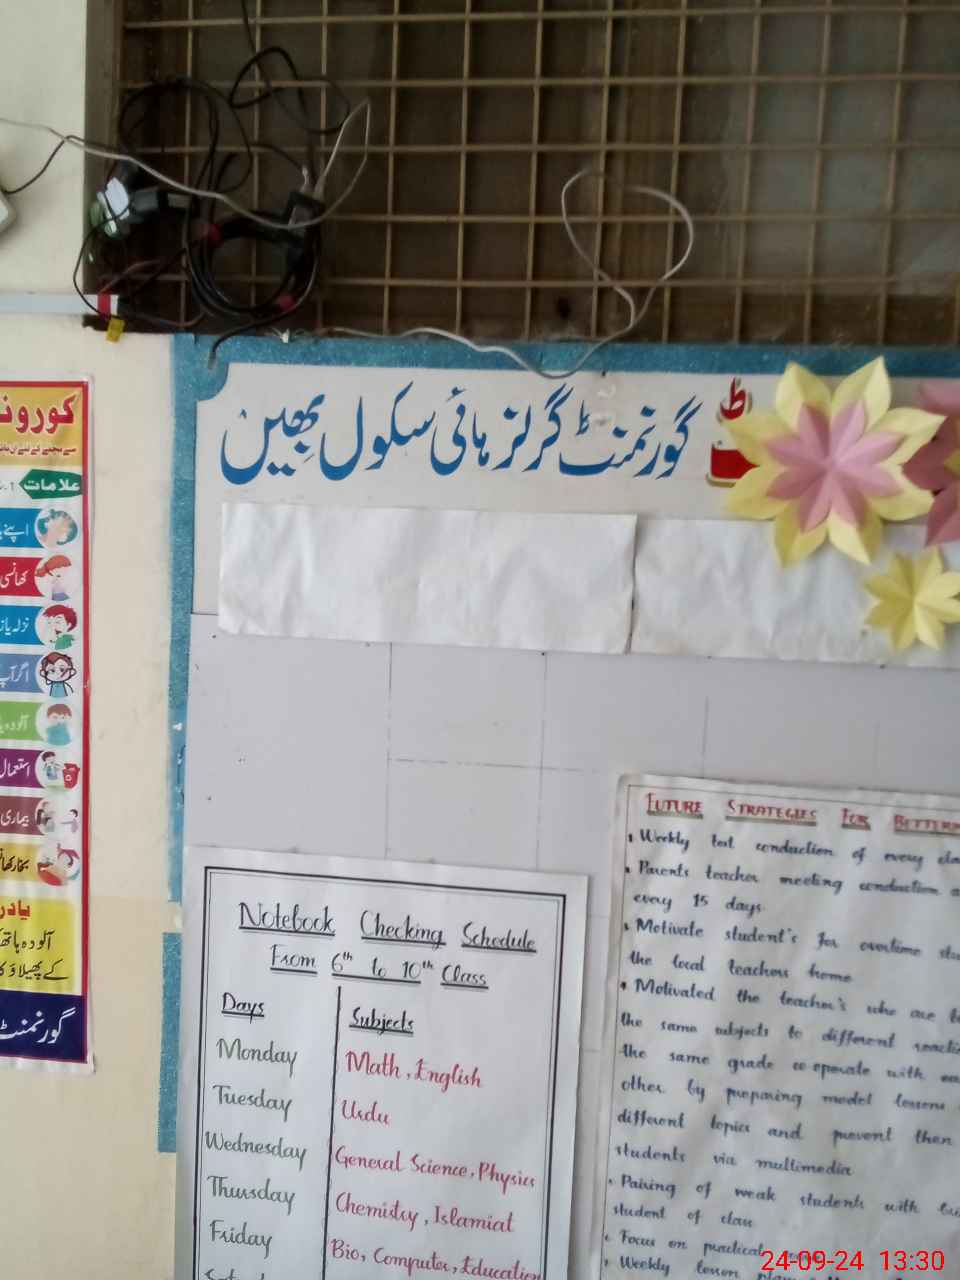 گورنمنٹ گرلز ہائی سکول بھیں
کورونا
علامات
کھانسی
استعمال
بیماری
آلودہ ہاتھ
کے پھیلاؤ کا
گورنمنٹ
Notebook Checking Schedule
From 6th to 10th Class
Days
Subjects
Monday
Math, English
Tuesday
Urdu
Wednesday
General Science, Physics
Thursday
Chemistry, Islamiat
Friday
Bio, Computer, Education
FUTURE STRATEGIES FOR
Weekly test conduction of every
Parents teacher meeting conduction
every 15 days.
Motivate student's for overtime
the local teachers home.
Motivated the teacher's who are
the same subjects to different
the same grade co-operate with
other by preparing model lessons
different topics and
students via multimedia
Pairing of weak students with
student of class
Focus on practical
Weekly lesson
24-09-24 13:30